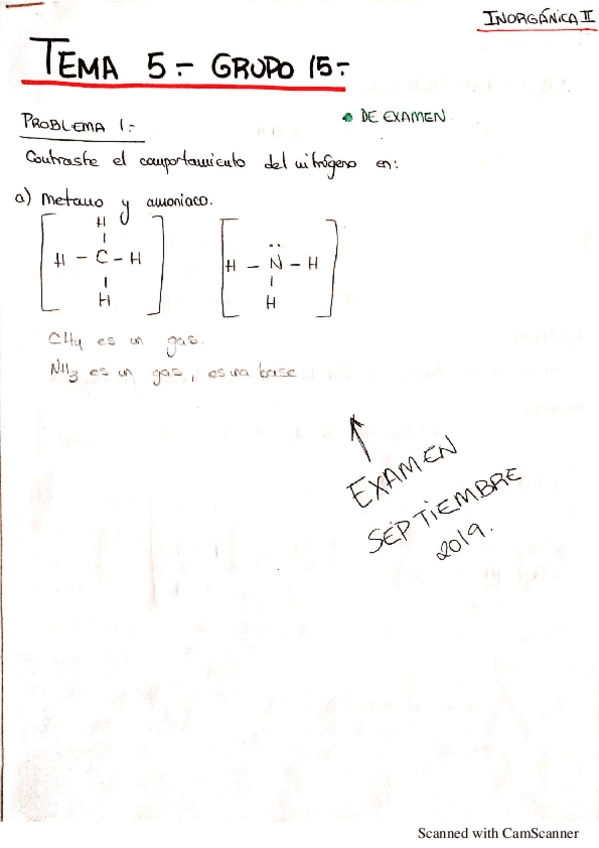 INORGÁNICA II
TEMA 5.- GRUPO 15.-
PROBLEMA 1.-
• DE EXAMEN
Contraste el comportamiento del nitrógeno en:
a) metano y amoniaco.
H
H - C - H
H
H - N - H
H
CH4 es un gas.
NH3 es un gas, es una base
EXAMEN
SEPTIEMBRE
2019.
Scanned with CamScanner